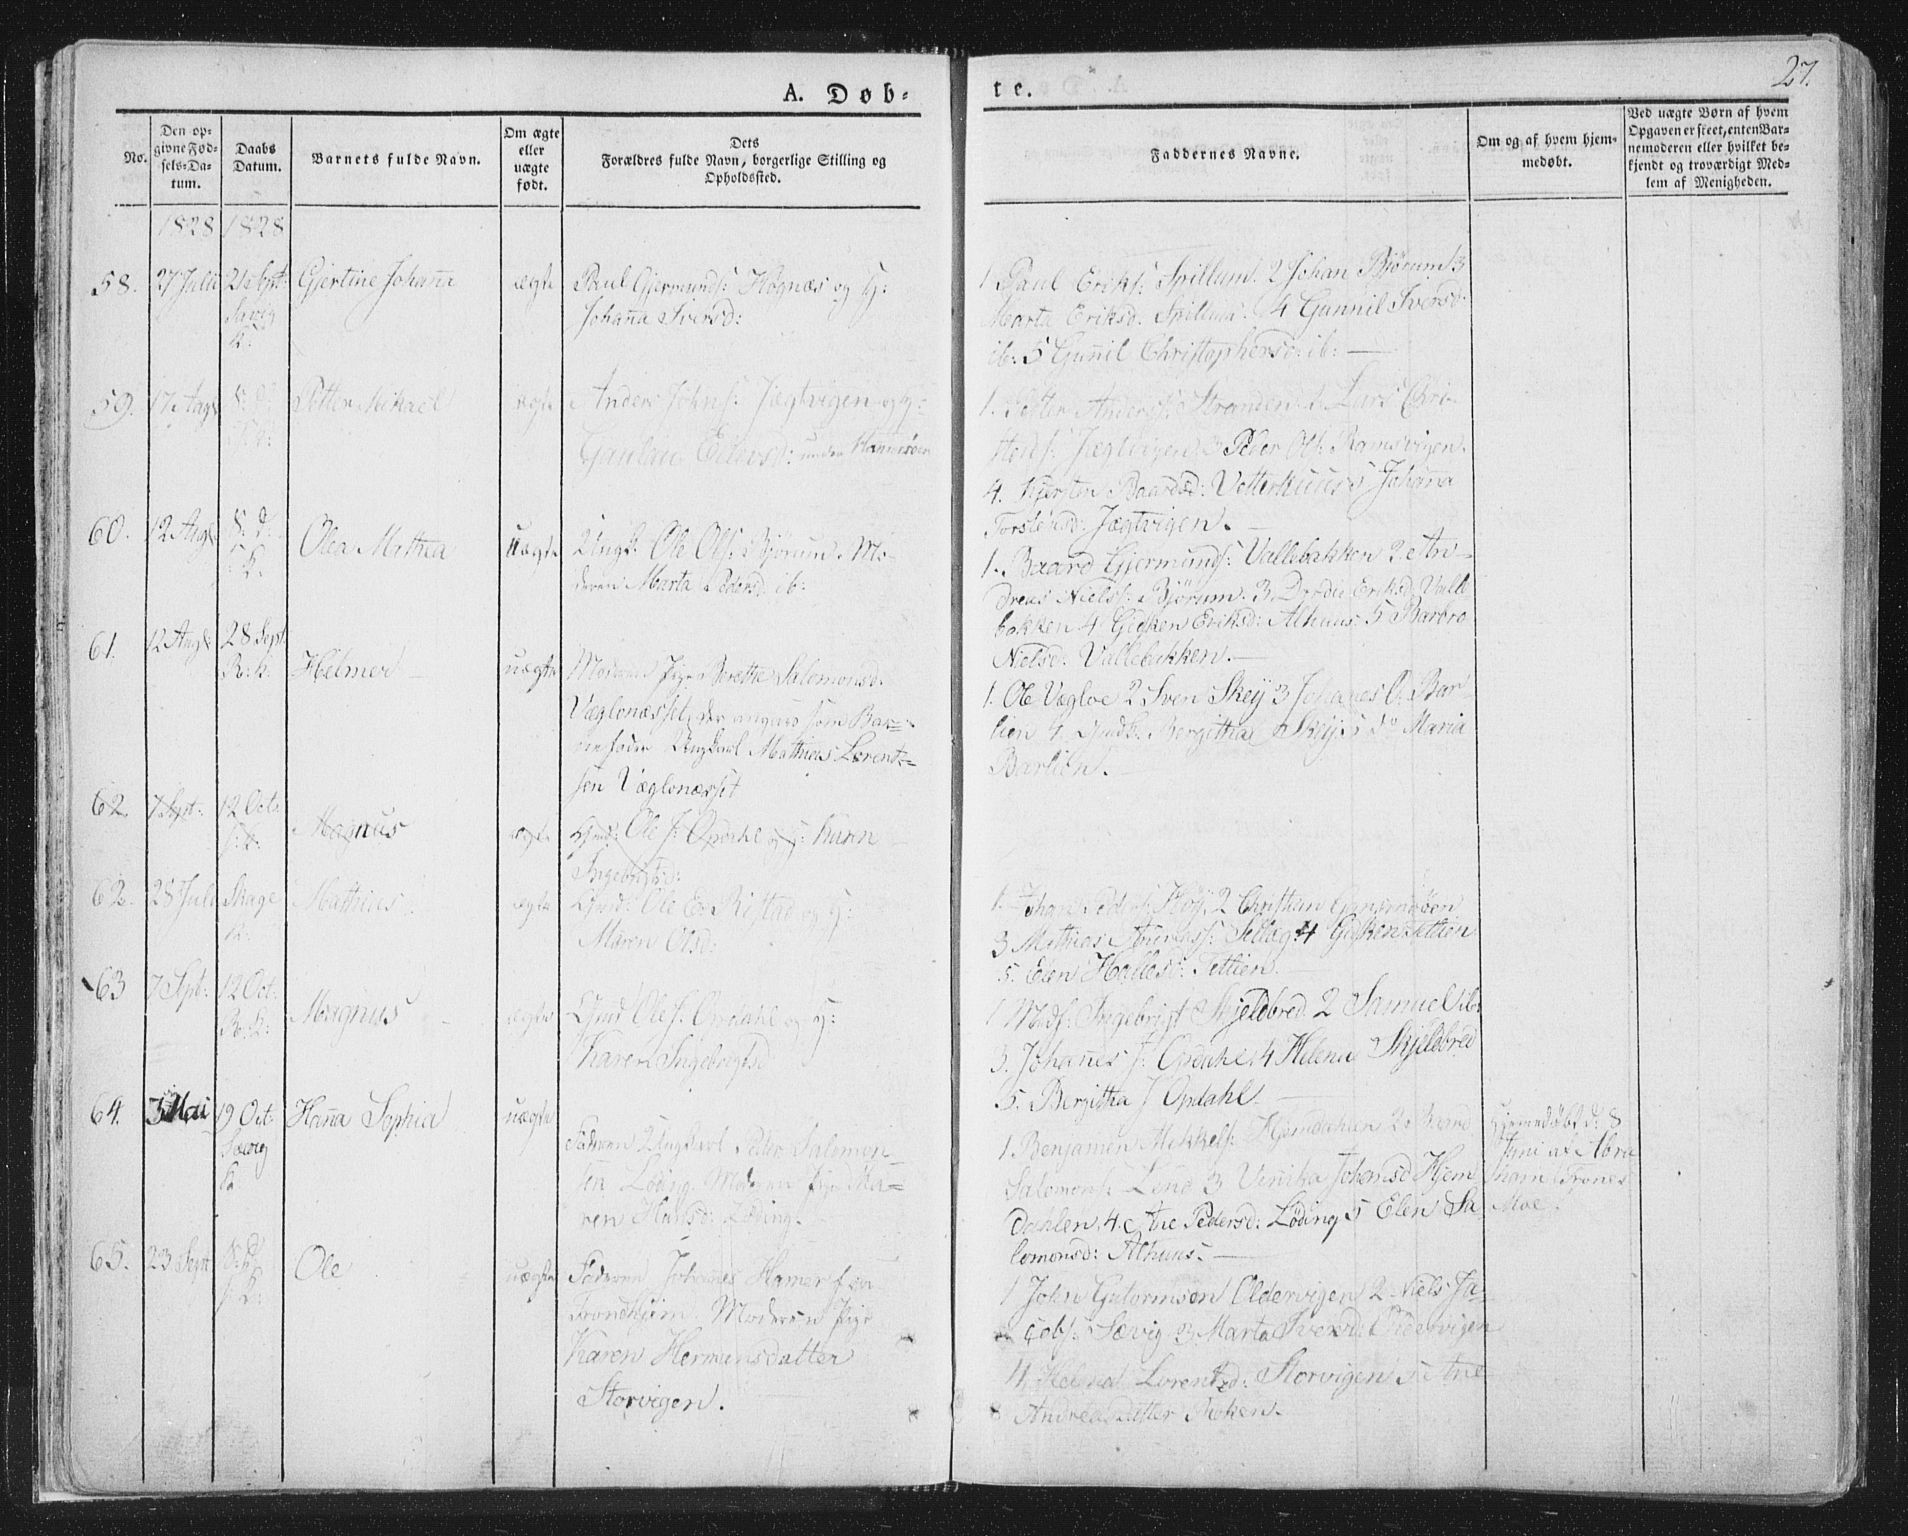 27.
A. Døb=
te.
No.
Den op=
givne Fød=
sels=Da=
tum.
Daabs
Datum.
Barnets fulde Navn.
Om ægte
eller
uægte
født.
Dets
Forældres fulde Navn, borgerlige Stilling og
Opholdssted.
Faddernes Navne.
Om og af hvem hjem=
medøbt.
Ved uægte Børn af hvem
Opgaven er skeet, enten Bar=
nemoderen eller hvilket be=
kjendt og troværdigt Med=
lem af Menigheden.
1828 1828
58. 27 Julii 21 Sept: Gjertine Johanna ægte Paul Gjermunds: Høgnæs og H:
Sævig
K:
Johanna Iversd:
1 Paul Eriks: Spillum. 2 Johan Bjørum 3
Marta Eriksd. Spillum: 4 Gunnil Iversd.
ib: 5 Gunnil Christophersd: ib:
59. 17 Aug: S: d: Petter Mikael ægte Anders Johns: Jægtvigen og H:
Eliersd: under
1. Petter Anders: Stranden 2 Lars Chri-
Jægtvigen 3 Peder Ols: Ramsvigen.
4. Kjersten Baardsd: Vetterhuus 5 Johana
Torstensd: Jægtvigen.
60. 12 Aug: S: d: Olea Mathea uægte Ungk: Ole Ols: Bjørum. Mo-
K:
deren Marta Pedersd. ib:
1. Baard Gjermunds: Vallebakken 2 An-
dreas Niels: Bjørum. 3 Dordie Eriksd. Valle
bakken 4 Gidsken Eriksd: Alhuus 5 Barbro
Nielsd: Vallebakken.
61. 12 Aug: 28 Sept. Helmer uægte Moderen Pige Berethe Salomonsd.
R: K:
Væglonæsset, der angives som Bar=
nefader Ungkarl Mathias Lorent=
sen Væglonæsset
1. Ole Vægloe 2 Sven Skey 3 Johanes O. Bar
lien 4. Bergitha Skey 5 do Maria
Barlien.
62. 7 Sept: 12 Oct: Magnus ægte Gmd: Ole J: Opdahl og H: Karen
Ingebrigtsd:
62. 28 Juli Skage Mathias ægte Gmd: Ole E. Ristad og H:
K:
Maren Olsd:
1. Johan Peders: Høy 2 Christian
3 Mathias 4 Gidsken
5. Elen Hallesd: Tettien.
63 7 Sept: 12 Oct: Magnus ægte Gmd Ole J: Opdahl og H:
R: K:
Karen Ingebrigtsd
1 Ingebrigt Skjeldbred 2 Samuel ib:
3. Johannes J: Opdahl 4 Helena Skjeldbred
5. Bergitha J Opdahl.
64. 3 Mai 19 Oct: Hanna Sophia uægte
Sævig
K
Faderen Ungkarl Peder Salomon
sen Løding. Moderen Pige Ma=
ren Hansd: Løding.
1 Benjamin Mikkels: Hjemdahlen 2
Salomons: Lund 3 Johansd Hjem
dahlen 4. Ane Pedersd: Løding 5 Elen Sa
lomonsd: Alhuus.
Hjemedøbt d: 8
Juni af Abra
ham Trones
Moe.
65. 23 Sept S: d: Ole uægte Faderen Johannes Hamer fra
K:
Trondhjem. Moderen Pige
Karen Hermansdatter
Storvigen.
1 John Guttormsen Oldervigen 2 Niels Ja=
cobs: Sævig 3 Marta Iversd: Oldervigen
4 Helena Lorentzd: Storvigen 5 Ane
Andreasdatter